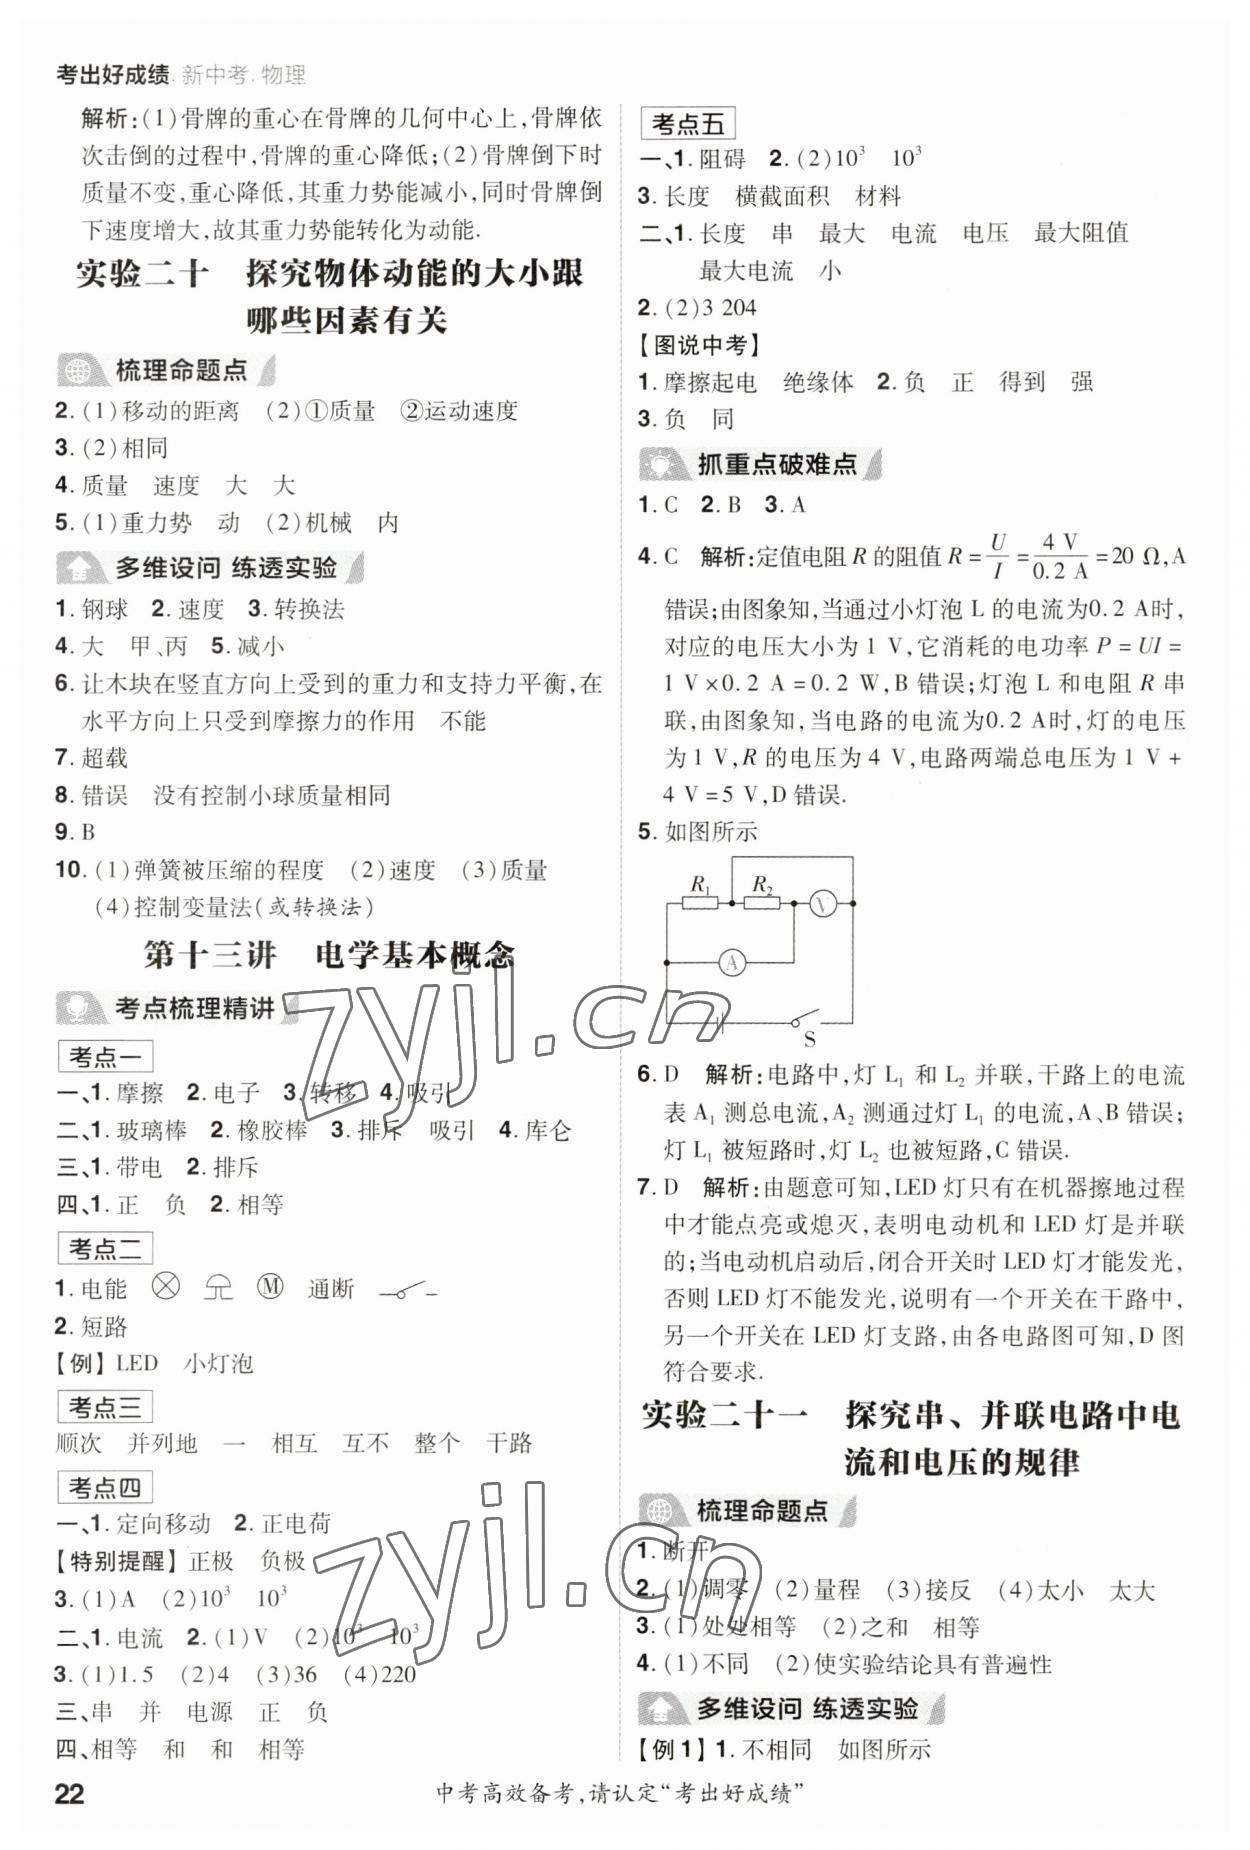 考出好成绩.新中考.物理
解析:(1)骨牌的重心在骨牌的几何中心上,骨牌依
次击倒的过程中,骨牌的重心降低;(2)骨牌倒下时
质量不变,重心降低,其重力势能减小,同时骨牌倒
下速度增大,故其重力势能转化为动能.
实验二十 探究物体动能的大小跟
哪些因素有关
梳理命题点
2.(1)移动的距离 (2)①质量 ②运动速度
3.(2)相同
4.质量 速度 大 大
5.(1)重力势 动 (2)机械 内
多维设问 练透实验
1.钢球 2.速度 3.转换法
4.大 甲、丙 5.减小
6.让木块在竖直方向上受到的重力和支持力平衡,在
水平方向上只受到摩擦力的作用 不能
7.超载
8.错误 没有控制小球质量相同
9.B
10.(1)弹簧被压缩的程度 (2)速度 (3)质量
(4)控制变量法(或转换法)
第十三讲 电学基本概念
考点梳理精讲
考点一
一、1.摩擦 2.电子 3.转移 4.吸引
二、1.玻璃棒 2.橡胶棒 3.排斥 吸引 4.库仑
三、1.带电 2.排斥
四、1.正 负 2.相等
考点二
1.电能 M 通断
2.短路
【例】LED 小灯泡
考点三
顺次 并列地 一 相互 互不 整个 干路
考点四
一、1.定向移动 2.正电荷
【特别提醒】正极 负极
3.(1)A (2)10³ 10³
二、1.电流 2.(1)V (2)10³ 10³
3.(1)1.5 (2)4 (3)36 (4)220
三、串 并 电源 正 负
四、相等 和 和 相等
考点五
一、1.阻碍 2.(2)10³ 10³
3.长度 横截面积 材料
二、1.长度 串 最大 电流 电压 最大阻值
最大电流 小
2.(2)3 204
【图说中考】
1.摩擦起电 绝缘体 2.负 正 得到 强
3.负 同
抓重点破难点
1.C 2.B 3.A
4.C 解析:定值电阻 R 的阻值 R=U/I=4 V/0.2 A=20 Ω,A
错误;由图象知,当通过小灯泡 L 的电流为0.2 A时,
对应的电压大小为 1 V,它消耗的电功率 P=UI=
1 V×0.2 A=0.2 W,B 错误;灯泡 L 和电阻 R 串
联,由图象知,当电路的电流为0.2 A时,灯的电压
为 1 V,R 的电压为 4 V,电路两端总电压为 1 V+
4 V=5 V,D 错误.
5.如图所示
R₁ R₂ V
A
S
6.D 解析:电路中,灯 L₁ 和 L₂ 并联,干路上的电流
表 A₁ 测总电流,A₂ 测通过灯 L₁ 的电流,A、B 错误;
灯 L₁ 被短路时,灯 L₂ 也被短路,C 错误.
7.D 解析:由题意可知,LED 灯只有在机器擦地过程
中才能点亮或熄灭,表明电动机和 LED 灯是并联
的;当电动机启动后,闭合开关时 LED 灯才能发光,
否则 LED 灯不能发光,说明有一个开关在干路中,
另一个开关在 LED 灯支路,由各电路图可知,D 图
符合要求.
实验二十一 探究串、并联电路中电
流和电压的规律
梳理命题点
1.断开
2.(1)调零 (2)量程 (3)接反 (4)太小 太大
3.(1)处处相等 (2)之和 相等
4.(1)不同 (2)使实验结论具有普遍性
多维设问 练透实验
【例 1】1.不相同 如图所示
22
中考高效备考,请认定“考出好成绩”
zyjl.cn
zyjl.cn